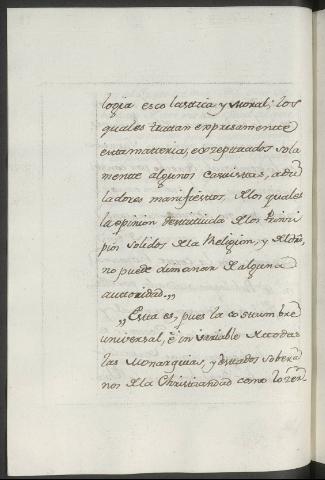 logia escolastica, y moral; los
quales tratan expresamente
esta materia, exceptuados sola
mente algunos casuistas, adu
ladores manifiestos, de los quales
la opinion destituida de los Princi
pios solidos de la Religion, y
no puede dimanar de alguna
autoridad.„
„Esta es, pues la costumbre
universal, è invariable de todas
las Monarquias, y estados sobera
nos de la Christiandad como lo